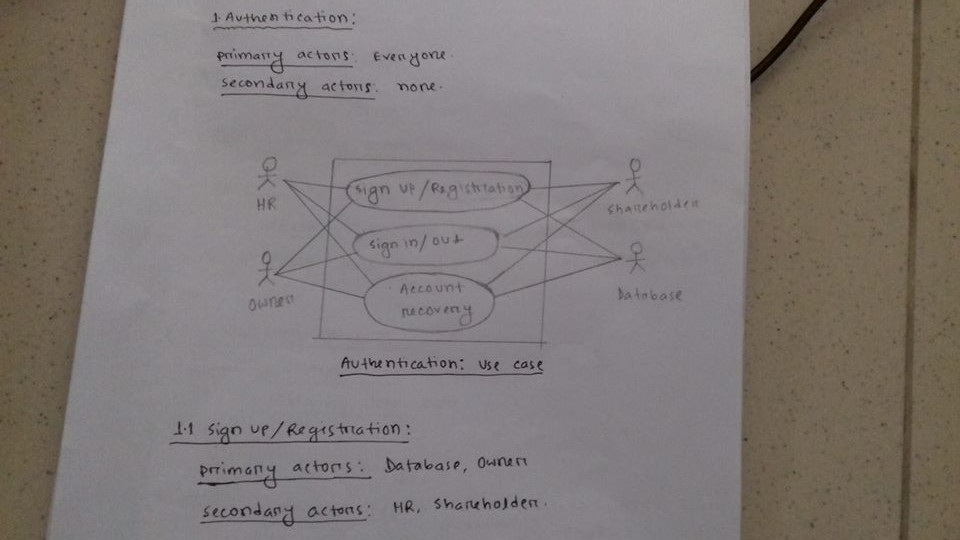 1. Authentication:
primary actors: Everyone.
secondary actors: none.
sign up/Registration
HR
shareholder
sign in/out
Owner
Database
Account
recovery
Authentication: use case
1.1 sign up/Registration:
primary actors: Database, Owner
secondary actors: HR, shareholder.